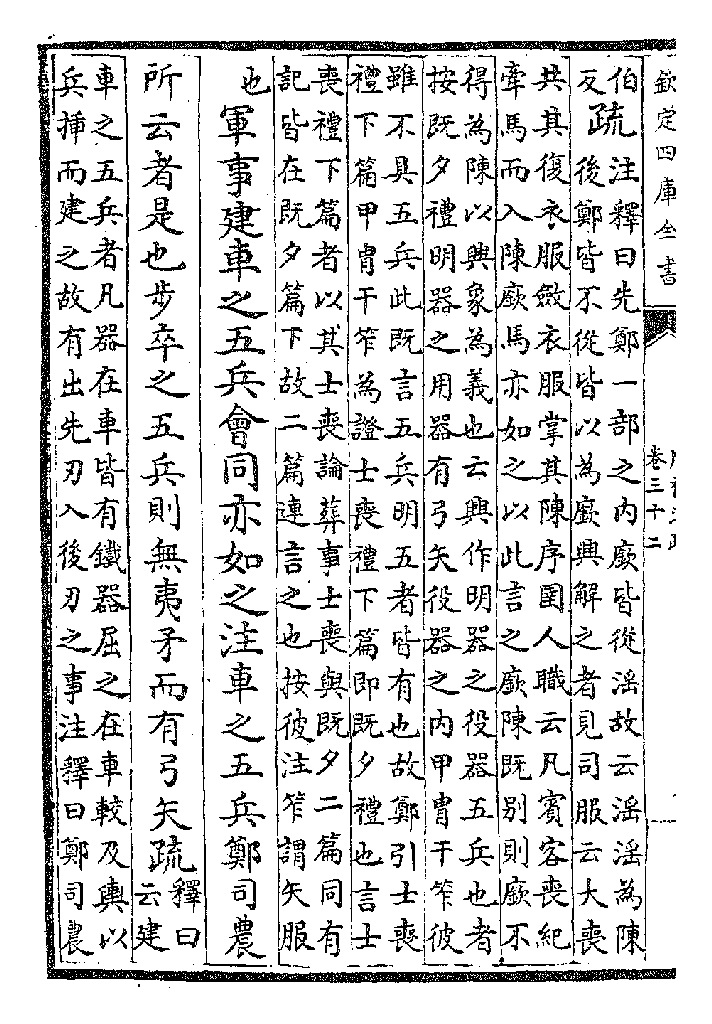 欽定四庫全書
卷三十二
伯
反
疏
注釋曰先鄭一部之內廞皆從淫故云淫淫為陳
後鄭皆不從皆以為廞興解之者見司服云大喪
共其復衣服斂衣服掌其陳序圉人職云凡賓客喪紀
牽馬而入陳廞馬亦如之以此言之廞陳既別則廞不
得為陳以興象為義也云興作明器之役器五兵也者
按既夕禮明器之用器有弓矢役器之內甲胄干笮彼
雖不具五兵此既言五兵明五者皆有也故鄭引士喪
禮下篇甲胄干笮為證士喪禮下篇即既夕禮也言士
喪禮下篇者以其士喪論葬事士喪與既夕二篇同有
記皆在既夕篇下故二篇連言之也按彼注笮謂矢服
也
軍事建車之五兵會同亦如之注車之五兵鄭司農
所云者是也步卒之五兵則無夷矛而有弓矢疏
釋曰
云建
車之五兵者凡器在車皆有鐵器屈之在車較及輿以
兵插而建之故有出先刃入後刃之事注釋曰鄭司農